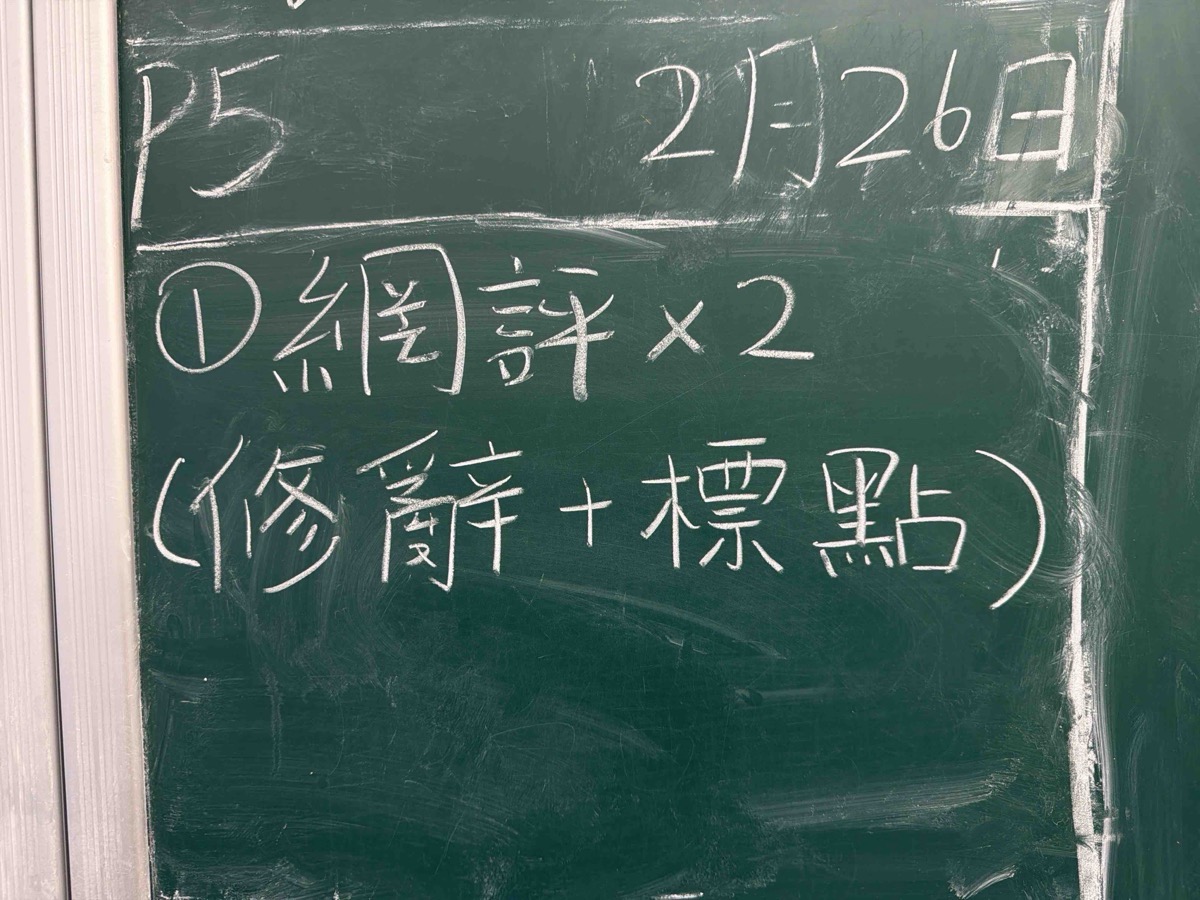 P5 2月26日
①網評×2
(修辭+標點)